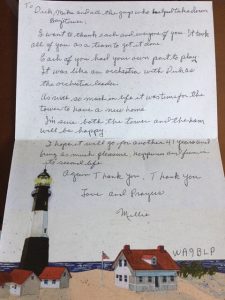 To Dick, Mike and all the guys who helped take down
I want to thank each and everyone of you. It took
all of you as a team to get it done
Each of you had your own part to play
It was like an orchestra with Duke as
the orchestra leader.
As with so much in life it was time for the
tower to have a new home
I'm sure both the tower and the ham
will be happy
I hope it will go for another 41 years and
bring as much pleasure, Happiness and fun in
its second life.
Again Thank you, Thank you
Love and Prayers
Millie
WA9BLP